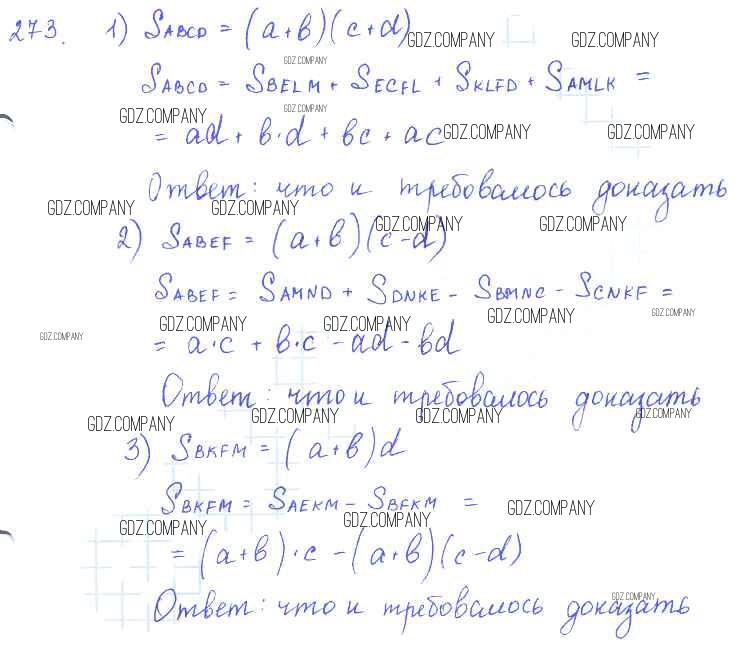 273. 1) SABCD = (a+b)(c+d)
GDZ.COMPANY GDZ.COMPANY
GDZ.COMPANY
SABCD = SBELM + SECFL + SKLFD + SAMLK =
GDZ.COMPANY GDZ.COMPANY
= ad + b·d + bc + ac
GDZ.COMPANY GDZ.COMPANY
Ответ: что и требовалось доказать
GDZ.COMPANY GDZ.COMPANY
2) SABEF = (a+b)(c-d)
GDZ.COMPANY GDZ.COMPANY
SABEF = SAMND + SDNKE - SBMNC - SCNKF =
GDZ.COMPANY GDZ.COMPANY GDZ.COMPANY GDZ.COMPANY
GDZ.COMPANY
= a·c + b·c - ad - bd
Ответ: что и требовалось доказать
GDZ.COMPANY GDZ.COMPANY GDZ.COMPANY GDZ.COMPANY
3) SBKFM = (a+b)d
SBKFM = SAEKM - SBFKM =
GDZ.COMPANY
GDZ.COMPANY GDZ.COMPANY
= (a+b)·c - (a+b)(c-d)
GDZ.COMPANY
Ответ: что и требовалось доказать